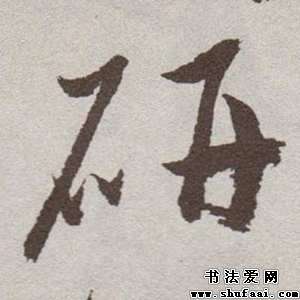 研
书法爱网
www.shufaai.com